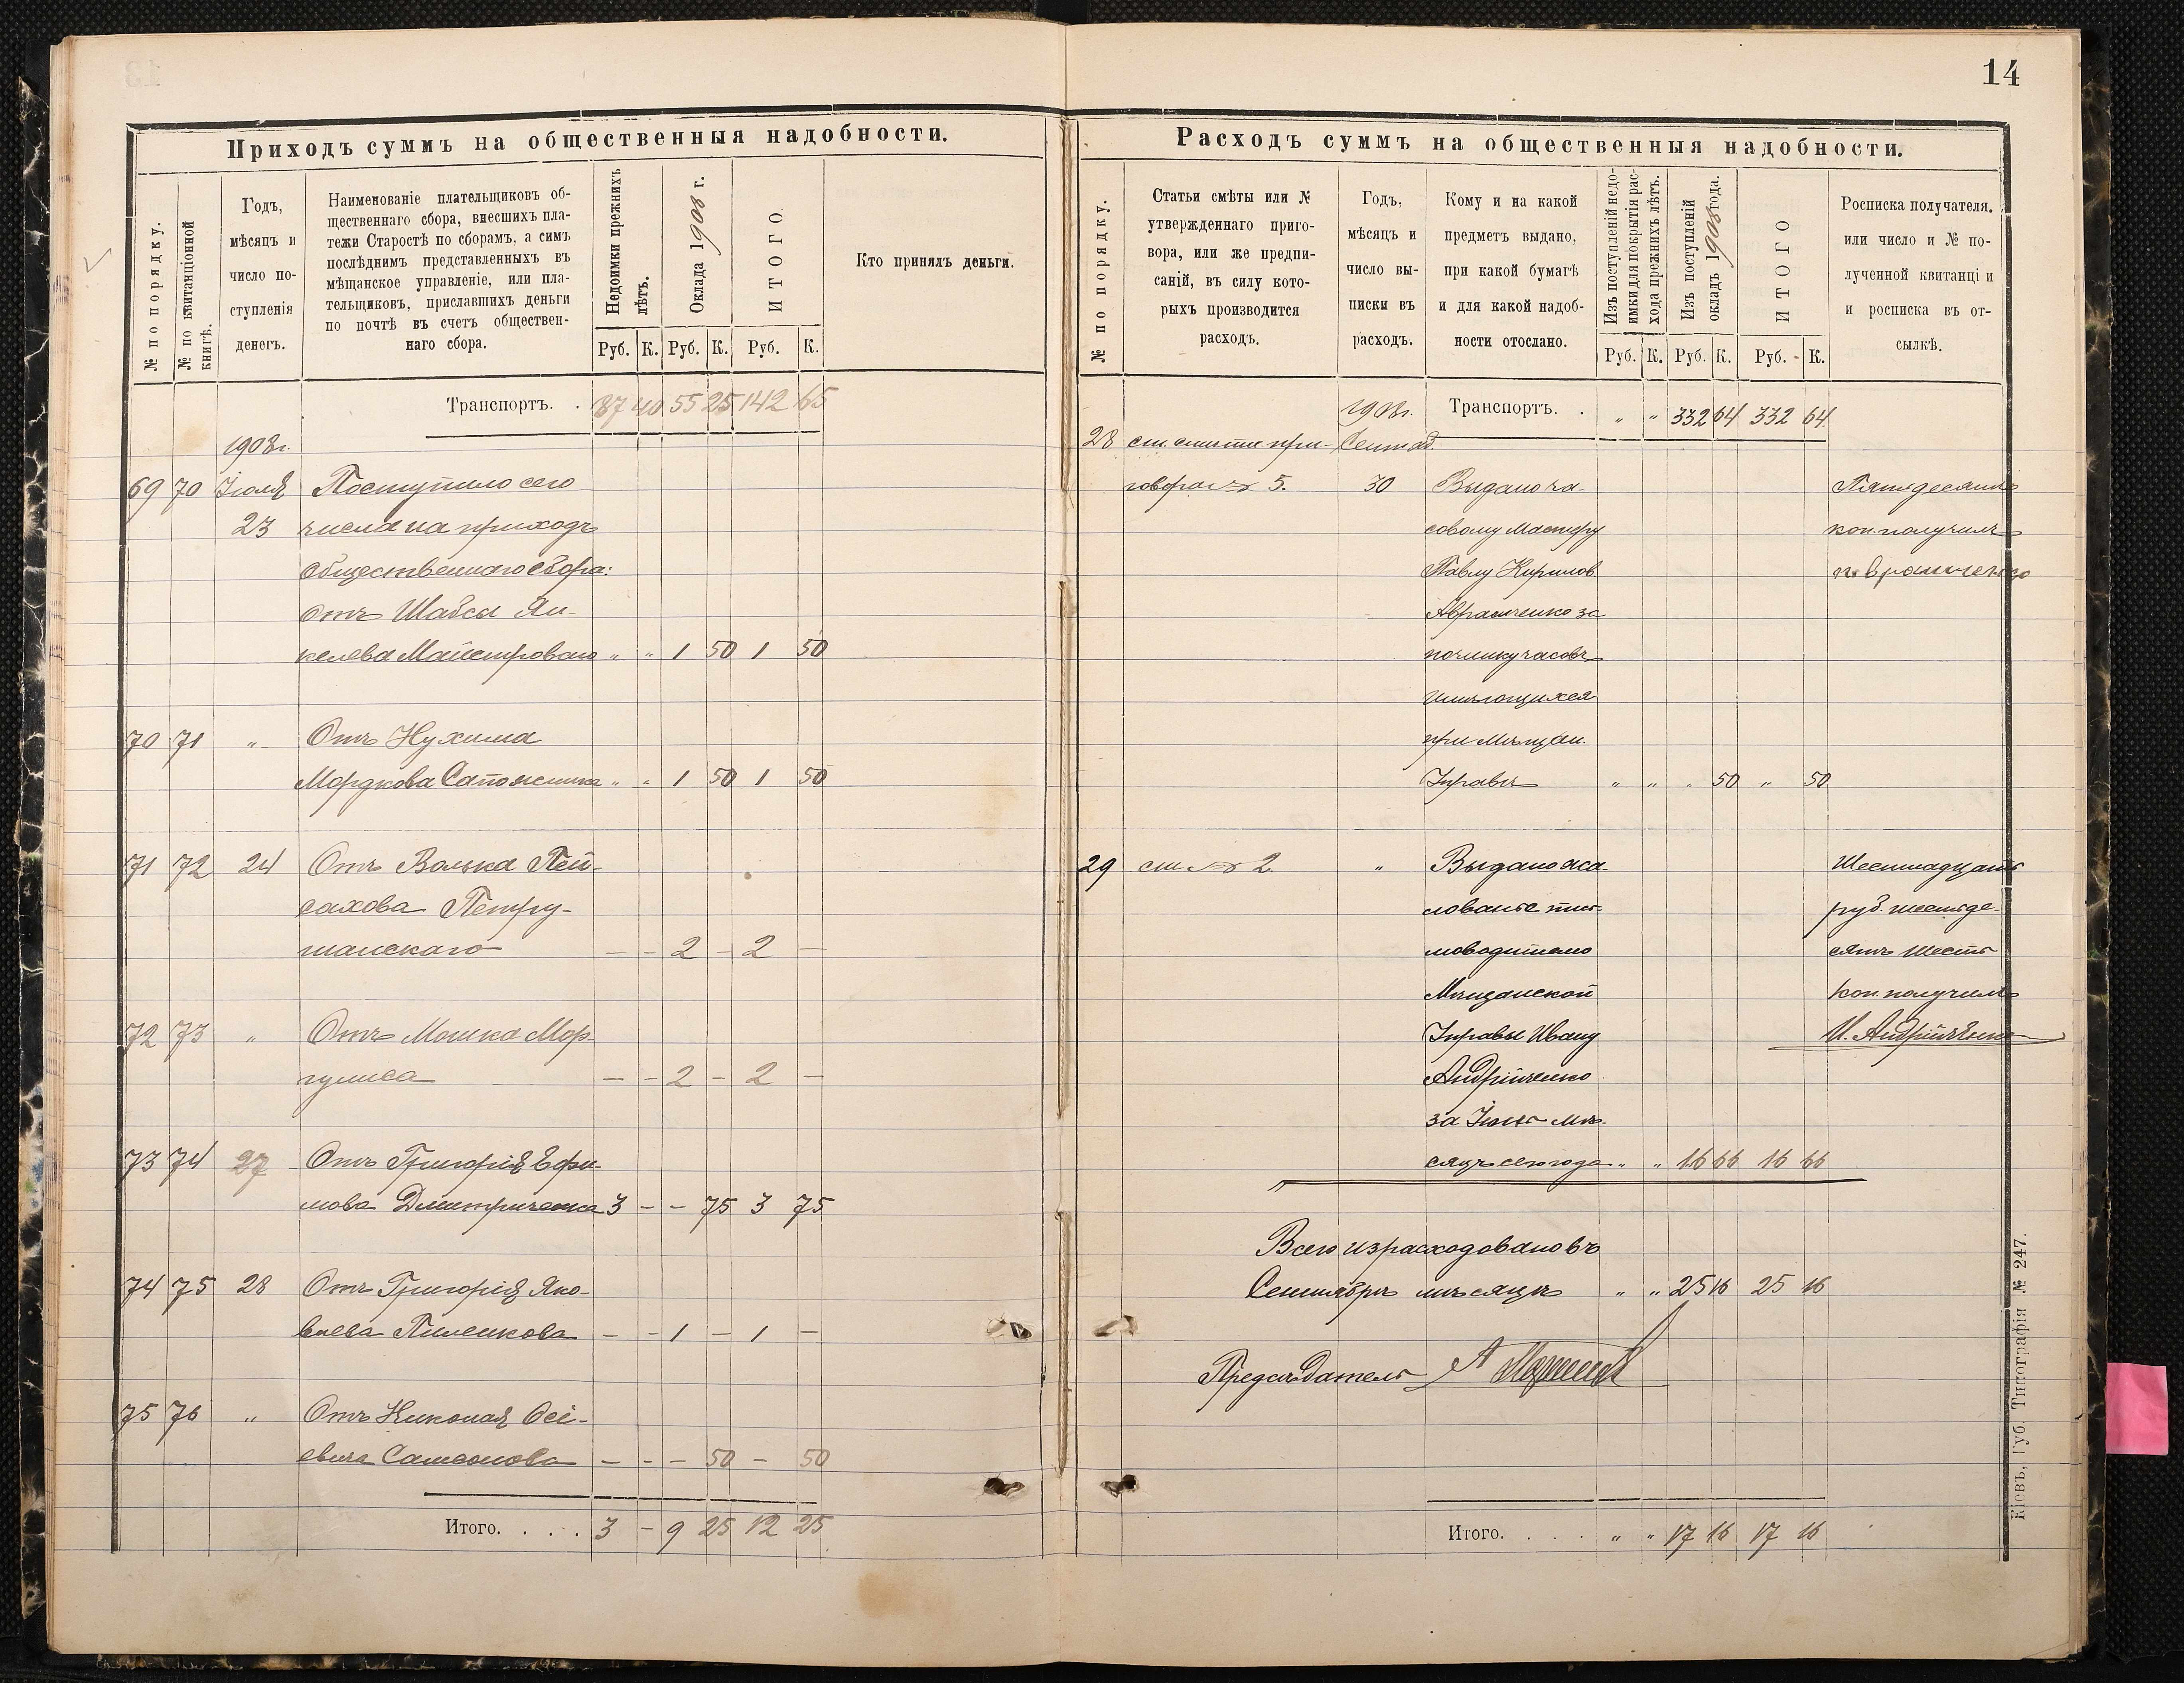 14
Приходъ суммъ на общественныя надобности.
№ по порядку.
№ по квитанціонной книгѣ.
Годъ, мѣсяцъ и число поступленія денегъ.
Наименованіе плательщиковъ об-
щественнаго сбора, внесшихъ пла-
тежи Старостѣ по сборамъ, а симъ
послѣднимъ представленныхъ въ
мѣщанское управленіе, или пла-
тельщиковъ, приславшихъ деньги
по почтѣ въ счетъ обществен-
наго сбора.
Недоимки прежнихъ лѣтъ.
Оклада 1908 г.
ИТОГО.
Кто принялъ деньги.
Руб. К. Руб. К. Руб. К.
Транспортъ. . 87 40 55 25 142 65
1908 г.
69 70 Іюля Поступило сего
23 числа на приходъ
общественнаго сбора:
отъ Шабса Ян-
келева Майстроваго " " 1 50 1 50
70 71 " Отъ Нухима
Мордкова Сапожника " " 1 50 1 50
71 72 24 Отъ Волька Пей-
сахова Петру-
шанскаго — — 2 — 2 —
72 73 " Отъ Мошка Мар-
гулиса — — 2 — 2 —
73 74 27 Отъ Григорія Ефи-
мова Дмитриченка 3 — — 75 3 75
74 75 28 Отъ Григорія Яко-
влева Пиленкова — — 1 — 1 —
75 76 " Отъ Николая Осі-
евича Самсонова — — — 50 — 50
Итого. . . . 3 — 9 25 12 25
Расходъ суммъ на общественныя надобности.
№ по порядку.
Статьи смѣты или №
утвержденнаго приго-
вора, или же предпи-
саній, въ силу кото-
рыхъ производится
расходъ.
Годъ,
мѣсяцъ и
число вы-
писки въ
расходъ.
Кому и на какой
предметъ выдано,
при какой бумагѣ
и для какой надоб-
ности отослано.
Изъ поступленій недо-
имки для покрытія рас-
хода прежнихъ лѣтъ.
Изъ поступленій
окладъ 1908 года.
ИТОГО
Росписка получателя.
или число и № по-
лученной квитанціи
и росписка въ от-
сылкѣ.
Руб. К. Руб. К. Руб. К.
1908 г. Транспортъ. . " " 332 64 332 64
28 ст. смѣты при- Сентяб.
говора № 5. 30 Выдано ча- Пятьдесятъ
совому мастеру коп. получилъ
Павлу Кирилов.
Авраменко за
починку часовъ
имѣющихся
при Мѣщан.
Управѣ " " " 50 " 50
29 ст. № 2. " Выдано жа- Шестнадцать
лованье пись- руб. шестьде-
моводителю сятъ шесть
Мѣщанской коп. получилъ
Управы Ивану И. Андрійченко
Андрійченко
за Іюнь мѣ-
сяцъ сего года " " 16 66 16 66
Всего израсходовано въ
Сентябрѣ мѣсяцѣ " " 25 16 25 16
Предсѣдатель
Итого. . . . " " 17 16 17 16
Кіевъ, Губ. Типографія № 247.